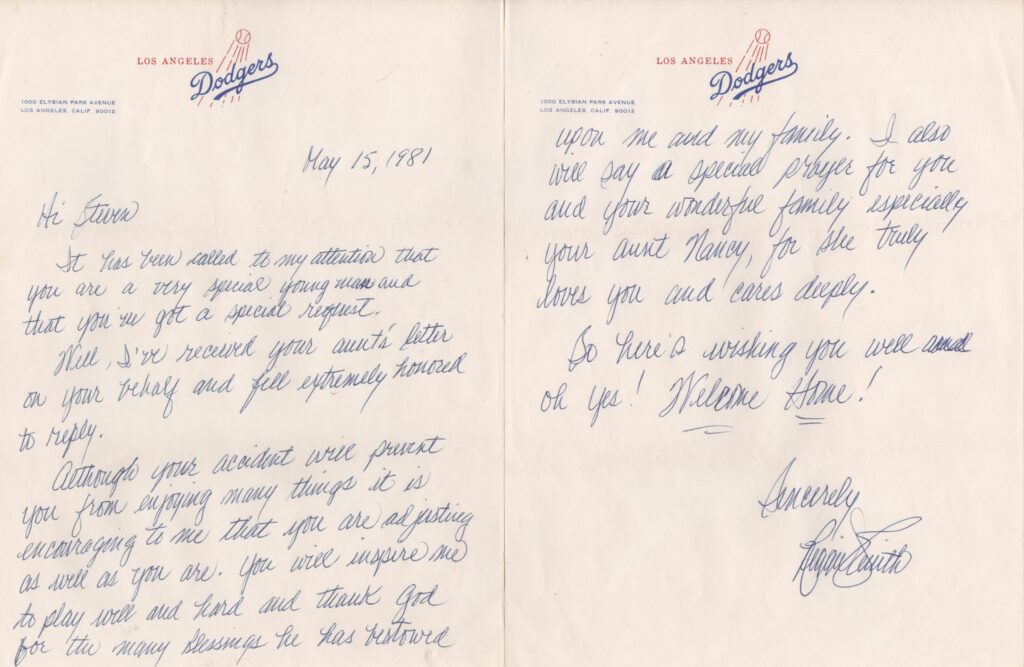 LOS ANGELES
Dodgers
1000 ELYSIAN PARK AVENUE
LOS ANGELES, CALIF. 90012
May 15, 1981
Hi Steven
It has been called to my attention that
you are a very special young man and
that you've got a special request.
Well, I've received your aunt's letter
on your behalf and feel extremely honored
to reply.
Although your accident will prevent
you from enjoying many things it is
encouraging to me that you are adjusting
as well as you are. You will inspire me
to play well and hard and thank God
for the many blessings he has bestowed
LOS ANGELES
Dodgers
1000 ELYSIAN PARK AVENUE
LOS ANGELES, CALIF. 90012
upon me and my family. I also
will say a special prayer for you
and your wonderful family especially
your aunt Nancy, for she truly
loves you and cares deeply.
So here's wishing you well and
oh yes! Welcome Home!
Sincerely
Reggie Smith